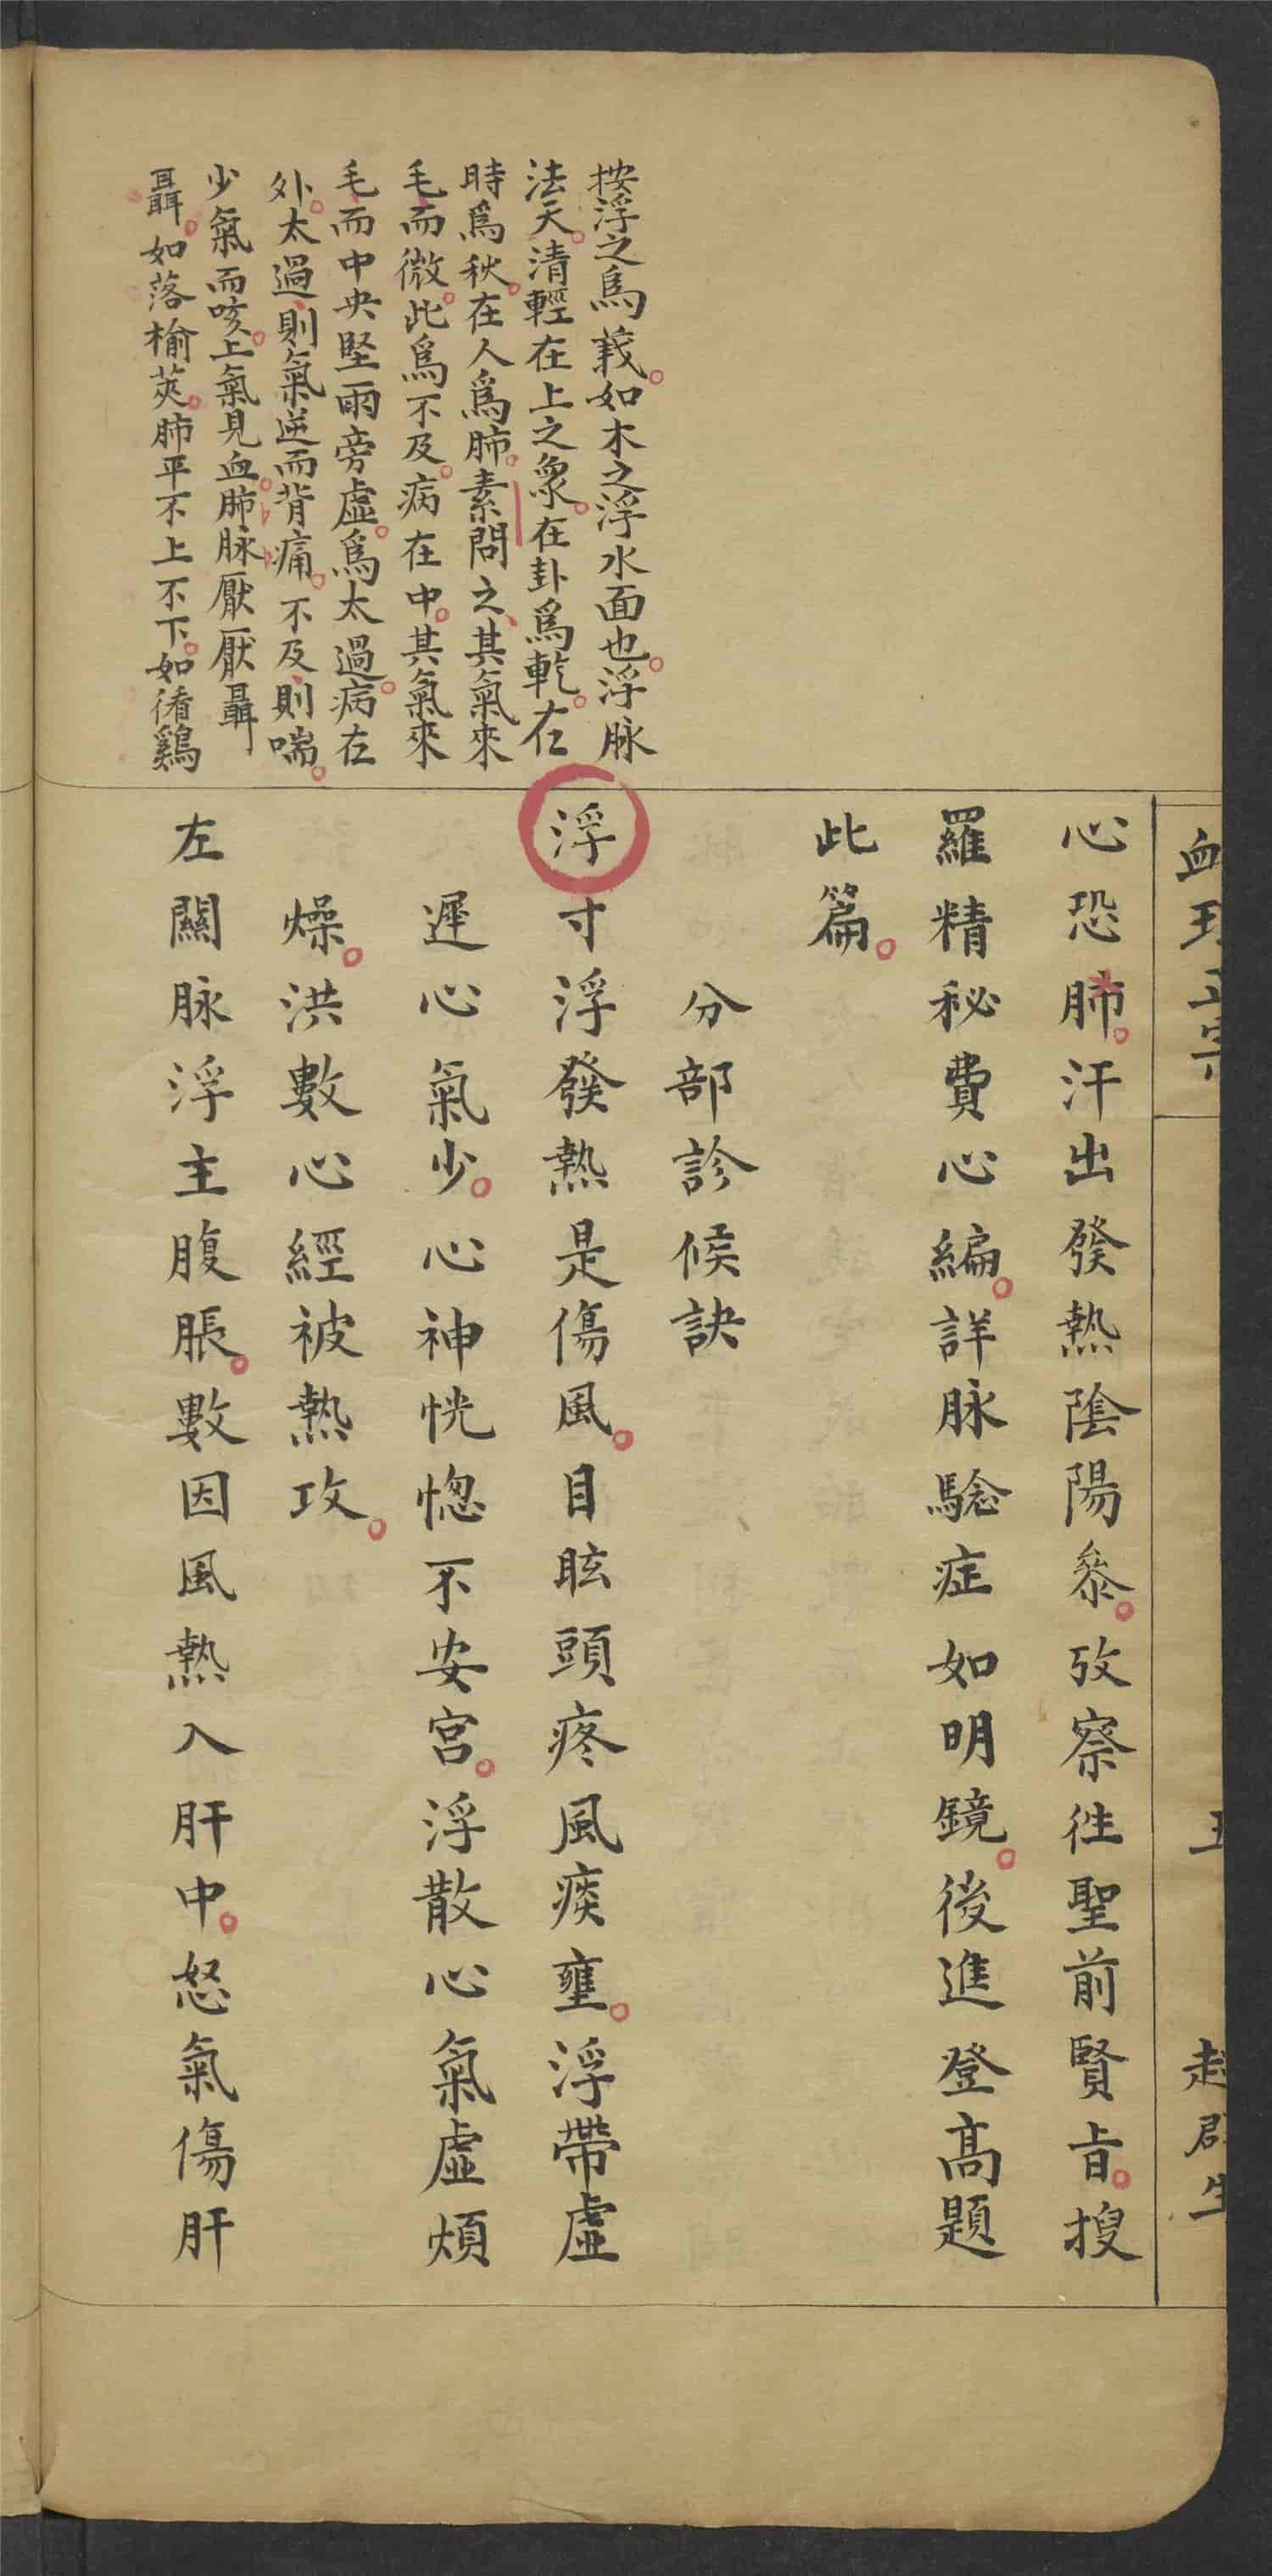 心恐肺汗出發熱陰陽叅攷察徃聖前賢旨搜
羅精秘費心編詳脉騐症如明鏡後進登高題
此篇
分部診候訣
浮寸浮發熱是傷風目眩頭疼風痰壅浮帶虛
遲心氣少心神恍惚不安宮浮散心氣虛煩
燥洪數心經被熱攻
左關脉浮主腹脹數因風熱入肝中怒氣傷肝
按浮之爲義如木之浮水面也浮脉
法天清輕在上之象在卦爲乾在
時爲秋在人爲肺素問之其氣來
毛而微此爲不及病在中其氣來
毛而中央堅兩旁虛爲太過病在
外太過則氣逆而背痛不及則喘
少氣而咳上氣見血肺脉厭厭聶
聶如落榆莢肺平不上不下如循鷄